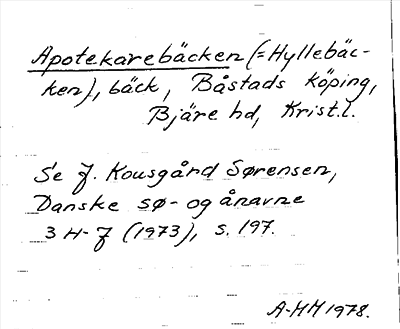 Apotekarebäcken (=Hyllebäc-
ken), bäck, Båstads köping,
Bjäre hd, Krist.l.
Se J. Kousgård Sørensen,
Danske sø- og ånavne
3 H-J (1973), s. 197.
A-HM 1978.